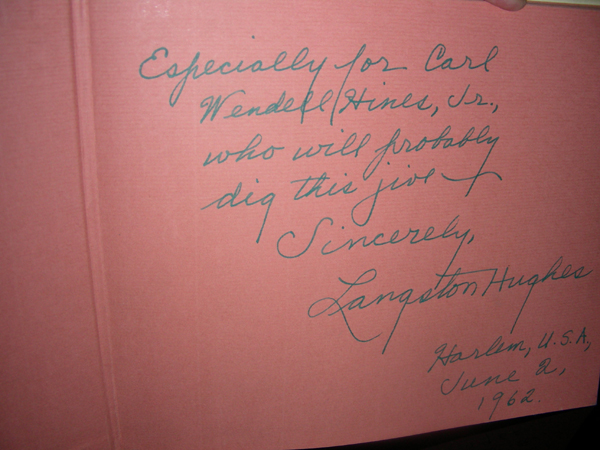 Especially for Carl
Wendell Hines, Jr.,
who will probably
dig this jive —
Sincerely,
Langston Hughes
Harlem, U.S.A.,
June 2,
1962.